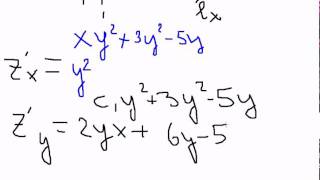 ℓₓ
xy²+3y²-5y
z'ₓ = y²
c, y²+3y²-5y
z'_y = 2yx + 6y-5